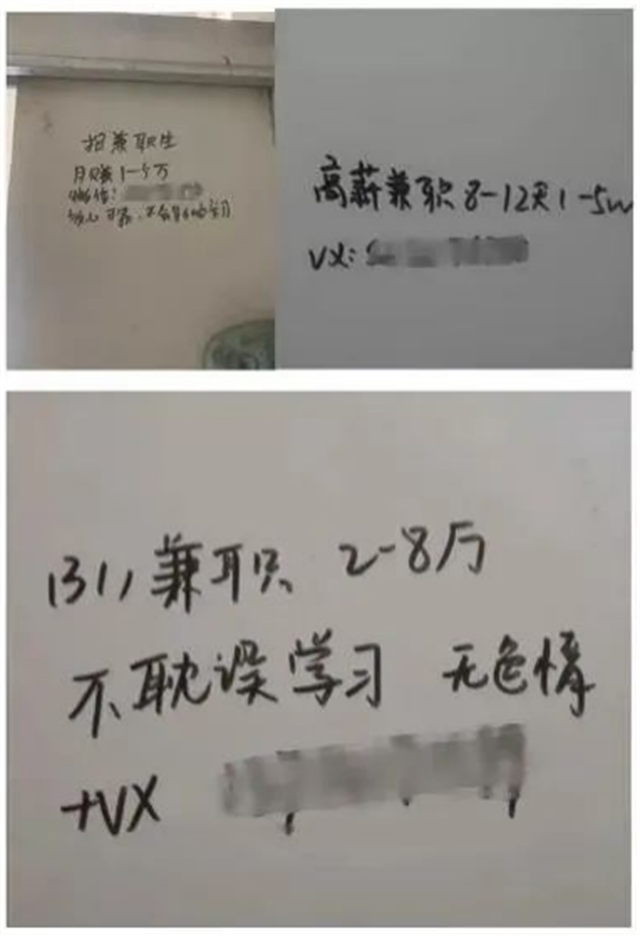 招兼职生
月赚1-5万
微信:
高薪兼职8-12天1-5w
VX:
兼职 2-8万
不耽误学习 无色情
+VX